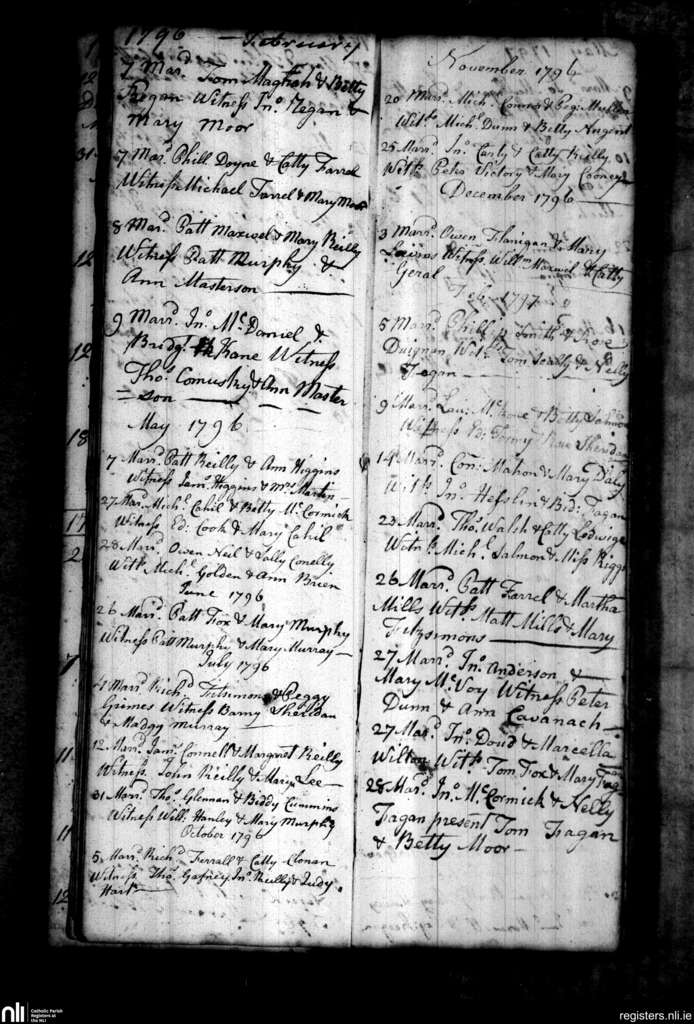 1796 — February
7 Mard. Tom Maghan & Betty
Regan Witness Jno. Negan &
Mary Moor
7 Mard. Phill Doyne & Catty Farrel
Witness Michael Farrel & Mary Moor
8 Mard. Patt Maxwel & Mary Reilly
Witness Patt Murphy &
Ann Masterson
9 Marrd. Jno. McDaniel &
Bridgt. Kane Witness
Thos. Comusky & Ann Master
=son
May 1796
7 Marrd. Patt Reilly & Ann Higgins
Witness Jams. Higgins & Mrs. Martin
27 Mar. Michl. Cahil & Betty McCormick
Witness Ed: Cook & Mary Cahil
28 Marrd. Owen Neil & Sally Conelly
Witss. Michl. Golden & Ann Brien
June 1796
26 Marrd. Patt Fox & Mary Murphy
Witness Patt Murphy & Mary Murray
July 1796
Marrd. Richd. Fitsimons & Peggy
Grimes Witness Barny Sheridan
& Madgy Murray
12 Marrd. Jams. Connell & Margret Reilly
Witness. John Reilly & Mary Lee
31 Marrd. Thos. Glennan & Biddy Cummins
Witness Will: Hanley & Mary Murphy
October 1796
5 Marrd. Richd. Ferrall & Catty Clonan
Witness Thos. Gafney Jno. Reilly & Judy
Hart
November 1796
20 Marrd. Mich. Connor & Peg:
Witss. Michl. Dunn & Betty Nugent
25 Marrd. Jno. Carty & Catty Reilly
Witss. Peter Victory & Mary Cooney
December 1796
3 Marrd. Owen Flanigan & Mary
Witness Willm. Maxwel & Catty
Geral
Feb. 1797
5 Marrd. Phillip Smith & Rose
Duignan Witss. Tom & Nelly
Fagan
9 Marrd. Lau: & Betty Salmon
Witness Ed: Rose Sheridan
14 Marrd. Con: Mahon & Mary Daly
Witss. Jno. Heslin & Bid: Fagan
23 Marrd. Thos. Walsh & Catty Ledwige
Witns. Michl. Salmon & Miss Riggs
26 Marrd. Patt Farrel & Martha
Mills Witss. Matt Mills & Mary
Fitzsimons
27 Marrd. Jno. Anderson &
Mary McVoy Witness Peter
Dunn & Ann Cavanach
27 Mard. Jno. Doud & Marcella
Wilton Witss. Tom Fox & Mary
28 Mard. Jno. McCormick & Nelly
Fagan present Tom Fagan
& Betty Moor
nli Catholic Parish
Registers at
the NLI
registers.nli.ie